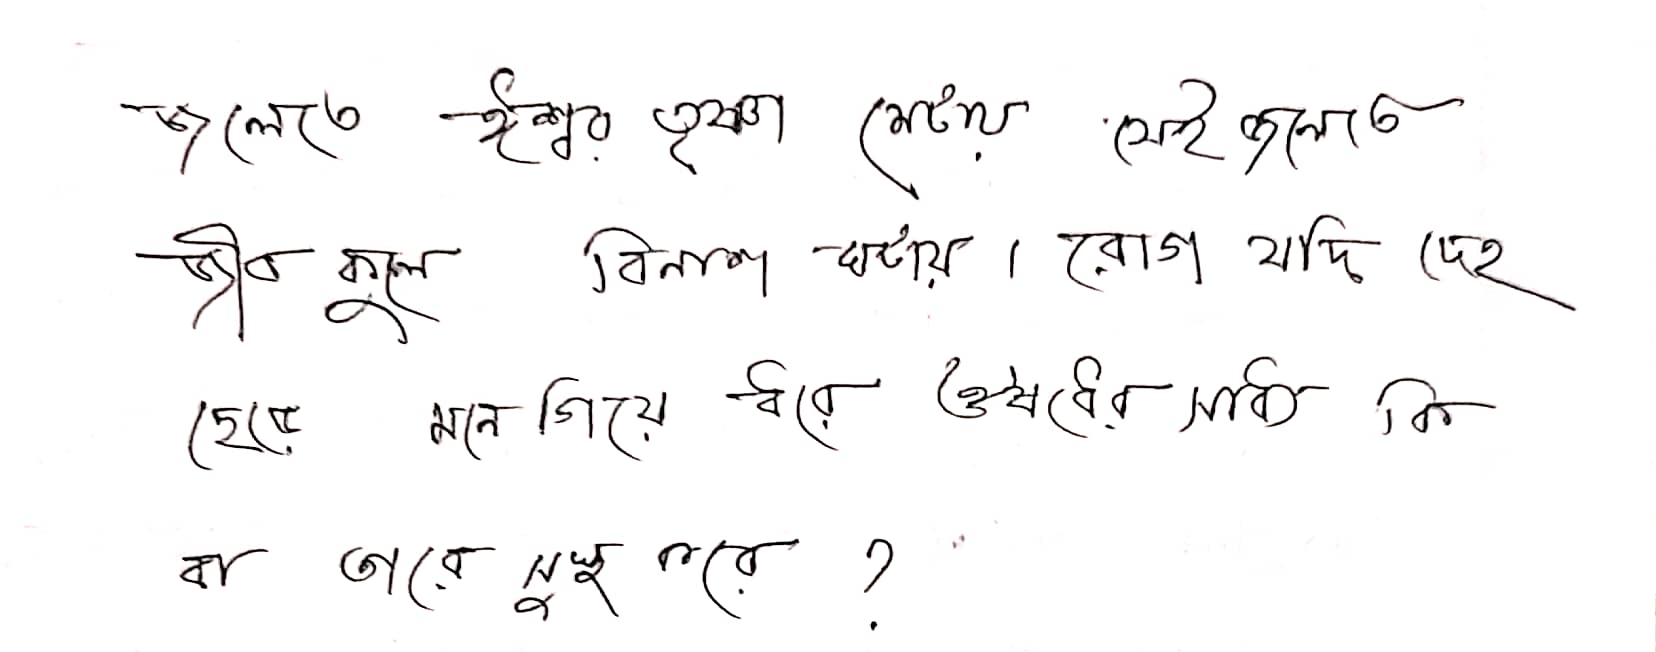 জলেতে ঈশ্বর তৃষ্ণা মেটায় সেই জলেতে
জীব কূলে বিনাশ ঘটায় । রোগ যদি দেহ
ছেড়ে মনে গিয়ে ধরে ঔষধের সাধ্যি কি
বা তারে সুস্থ করে ?